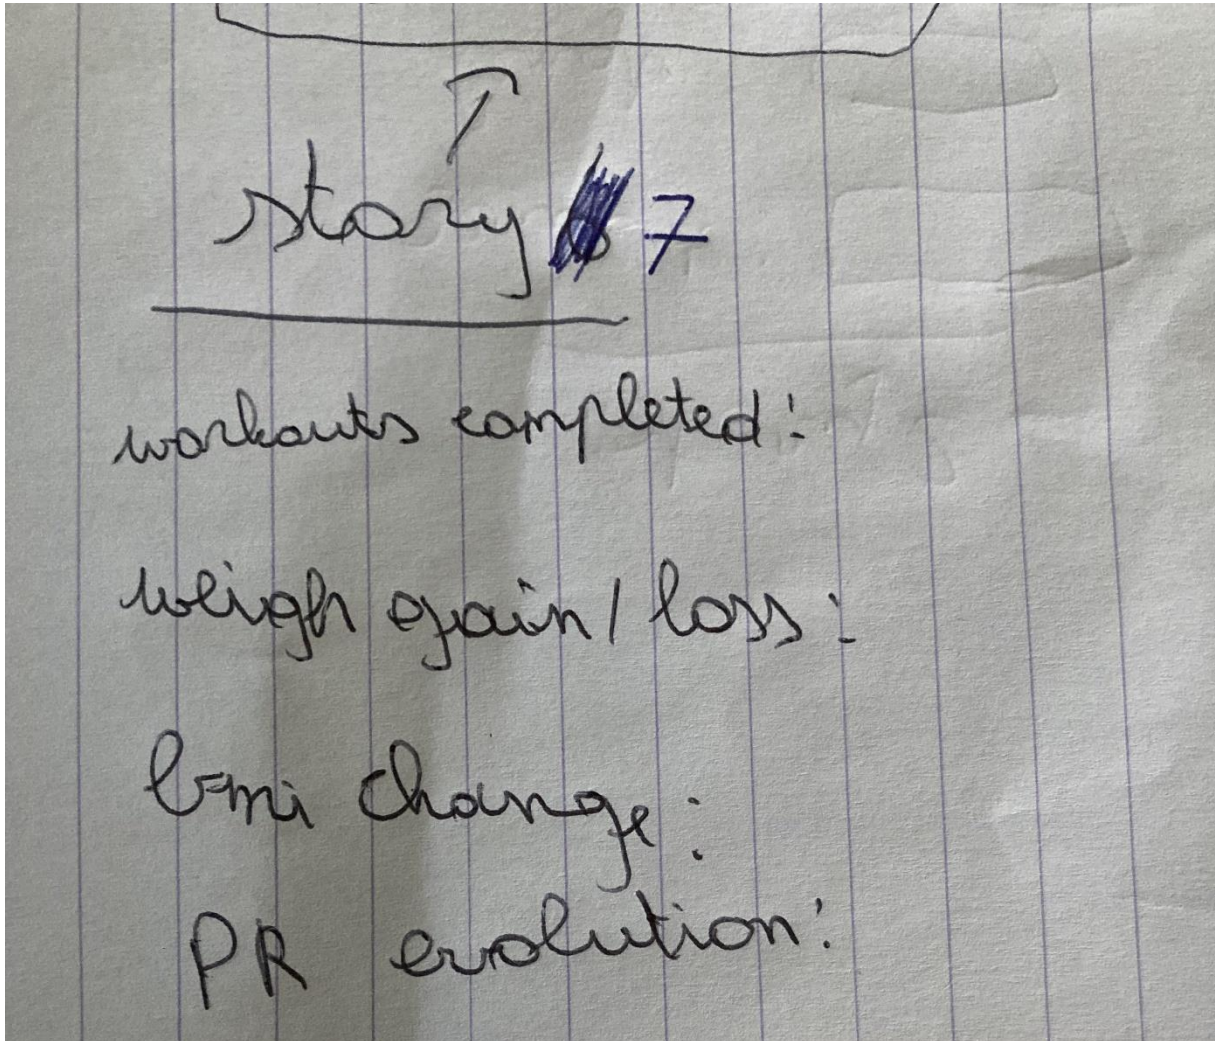 story 7
workouts completed:
weigh gain/loss:
bmi change:
PR evolution: